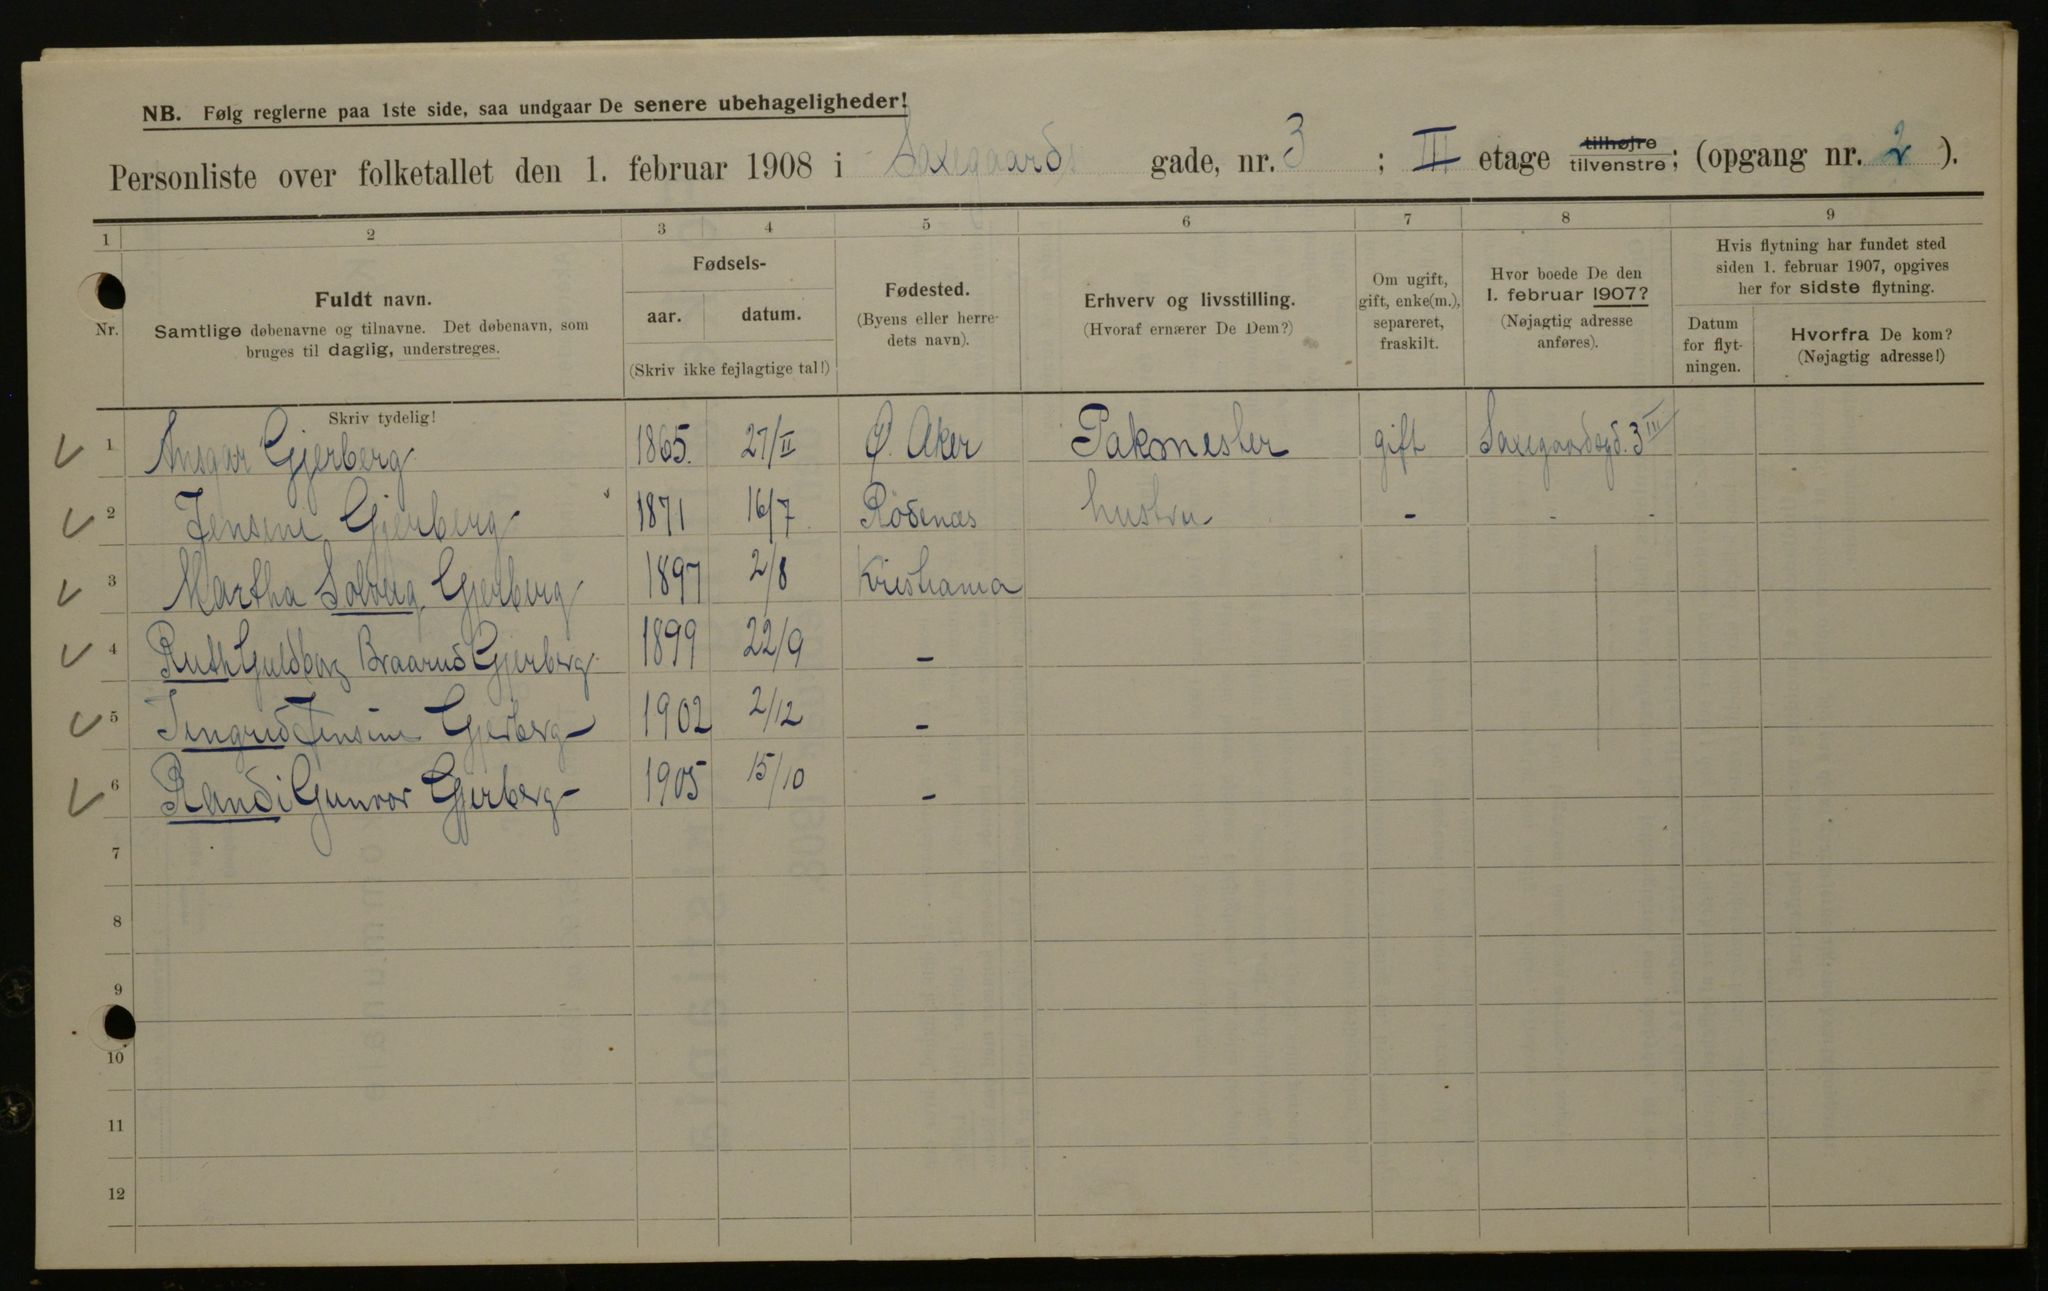 NB. Følg reglerne paa 1ste side, saa undgaar De senere ubehageligheder!
Personliste over folketallet den 1. februar 1908 i Saxegaards gade, nr. 3 ; III etage tilhøjre tilvenstre; (opgang nr. 2 ).
1 2 3 4 5 6 7 8 9
Nr.
Fuldt navn.
Samtlige døbenavne og tilnavne. Det døbenavn, som
bruges til daglig, understreges.
Skriv tydelig!
Fødsels-
aar. datum.
(Skriv ikke fejlagtige tal!)
Fødested.
(Byens eller herre-
dets navn).
Erhverv og livsstilling.
(Hvoraf ernærer De Dem?)
Om ugift,
gift, enke(m.),
separeret,
fraskilt.
Hvor boede De den
1. februar 1907?
(Nøjagtig adresse
anføres).
Hvis flytning har fundet sted
siden 1. februar 1907, opgives
her for sidste flytning.
Datum
for flyt-
ningen.
Hvorfra De kom?
(Nøjagtig adresse!)
1 Ansgar Gjerberg 1865. 27/II Ø. Aker Pakmester gift Saxegaardsgd. 3 III
2 Jensine Gjerberg 1871 16/7 Rödenæs hustru - - -
3 Martha Solveig Gjerberg 1897 2/8 Kristiania
4 Ruth Guldborg Braarud Gjerberg 1899 22/9 -
5 Ingrid Jensine Gjerberg 1902 2/12 -
6 Randi Gunvor Gjerberg 1905 15/10 -
7
8
9
10
11
12